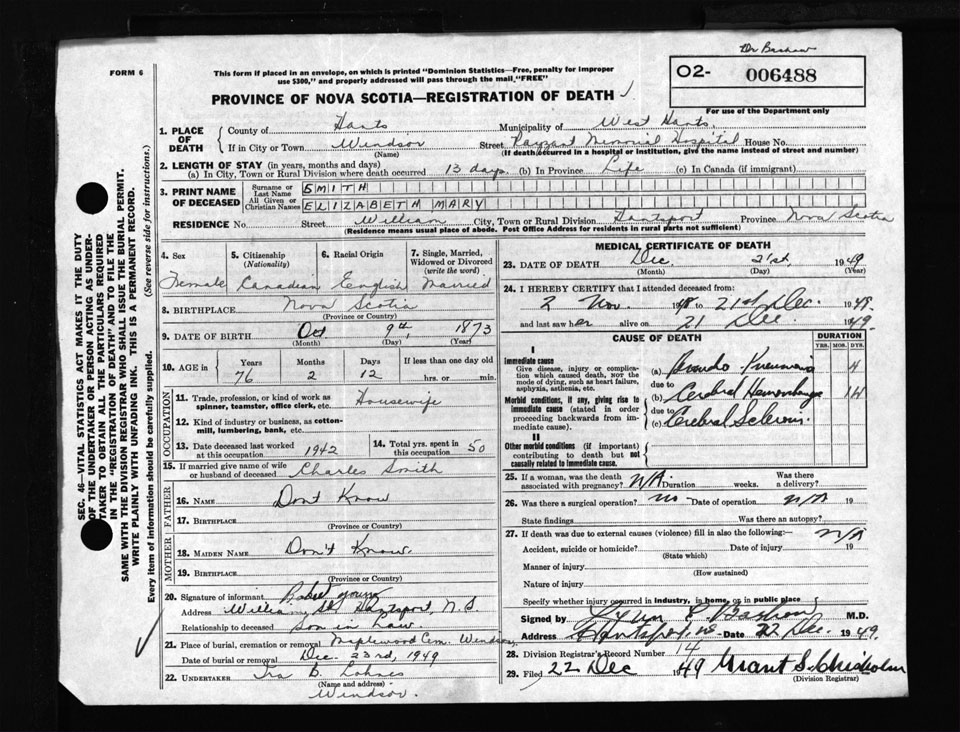 Dr Bashaw
FORM 6
This form if placed in an envelope, on which is printed "Dominion Statistics—Free, penalty for improper
use $300," and properly addressed will pass through the mail "FREE"
O2- 006488
For use the Department only
PROVINCE OF NOVA SCOTIA—REGISTRATION OF DEATH
1. PLACE OF DEATH
County of Hants Municipality of West Hants
If in City or Town Windsor Street Memorial Hospital House No.
(Name) (If death occurred in a hospital or institution, give the name instead of street and number)
2. LENGTH OF STAY (in years, months and days)
(a) In City, Town or Rural Division where death occurred 13 days (b) In Province Life (c) In Canada (if immigrant)
3. PRINT NAME OF DECEASED
Surname or Last Name SMITH
All Given or Christian Names ELIZABETH MARY
RESIDENCE No. Street William City, Town or Rural Division Hantsport Province Nova Scotia
(Residence means usual place of abode. Post Office Address for residents in rural parts not sufficient)
4. Sex 5. Citizenship (Nationality) 6. Racial Origin 7. Single, Married, Widowed or Divorced (write the word)
Female Canadian English Married
8. BIRTHPLACE Nova Scotia
(Province or Country)
9. DATE OF BIRTH Oct 9th, 1873
(Month) (Day) (Year)
10. AGE in Years Months Days If less than one day old
76 2 12 hrs. or min.
OCCUPATION
11. Trade, profession, or kind of work as spinner, teamster, office clerk, etc. Housewife
12. Kind of industry or business, as cotton-mill, lumbering, bank, etc.
13. Date deceased last worked at this occupation 1942 14. Total yrs. spent in this occupation 50
15. If married give name of wife or husband of deceased Charles Smith
FATHER
16. NAME Don't Know
17. BIRTHPLACE
(Province or Country)
MOTHER
18. MAIDEN NAME Don't Know.
19. BIRTHPLACE
(Province or Country)
20. Signature of informant Robert Young
Address William St Hantsport, N.S.
Relationship to deceased Son in law.
21. Place of burial, cremation or removal Maplewood Cem. Windsor
Date of burial or removal Dec. 23rd, 1949
22. UNDERTAKER Ira B. Lohnes
(Name and address)
Windsor.
MEDICAL CERTIFICATE OF DEATH
23. DATE OF DEATH Dec. 21st. 1949
(Month) (Day) (Year)
24. I HEREBY CERTIFY that I attended deceased from:
2 Nov. to 21st Dec. 1949.
and last saw her alive on 21 Dec. 1949.
CAUSE OF DEATH DURATION
YRS. MOS. DYS.
I
Immediate cause
Give disease, injury or complication which caused death, Not the mode of dying, such as heart failure, asphyxia, asthenia, etc.
(a) Broncho Pneumonia 4
due to
Morbid conditions, if any, giving rise to immediate cause (stated in order proceeding backwards from immediate cause).
(b) Cerebral Hemorrhage 14
due to
(c) Cerebral Sclerosis
II
Other morbid conditions (if important) contributing to death but not causally related to immediate cause.
25. If a woman, was the death associated with pregnancy? N/A Duration weeks. Was there a delivery?
26. Was there a surgical operation? no Date of operation N/A 19
State findings Was there an autopsy?
27. If death was due to external causes (violence) fill in also the following:— N/A
Accident, suicide or homicide? Date of injury 19
(State which)
Manner of injury
(How sustained)
Nature of injury
Specify whether injury occurred in industry, in home, or in public place
Signed by Bashaw M.D.
Address Hantsport, NS Date 22 Dec. 1949.
28. Division Registrar's Record Number 14
29. Filed 22 Dec 1949 Grant S. Chisholm
(Division Registrar)
SEC. 46—VITAL STATISTICS ACT MAKES IT THE DUTY
OF THE UNDERTAKER OR PERSON ACTING AS UNDER-
TAKER TO OBTAIN ALL THE PARTICULARS REQUIRED
IN THE "REGISTRATION OF DEATH" AND TO FILE THE
SAME WITH THE DIVISION REGISTRAR WHO SHALL ISSUE THE BURIAL PERMIT.
WRITE PLAINLY WITH UNFADING INK. THIS IS A PERMANENT RECORD.
Every item of information should be carefully supplied. (See reverse side for instructions.)